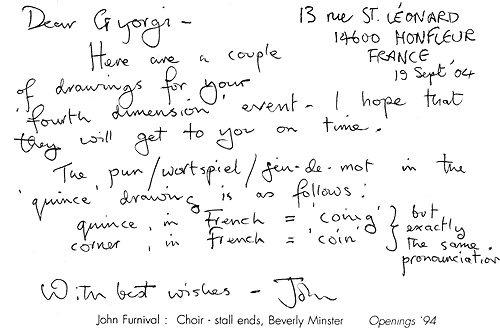 Dear Gyorgi -
13 rue ST. LÉONARD
14600 HONFLEUR
FRANCE
19 Sept '04
Here are a couple
of drawings for your
'fourth dimension' event - I hope that
they will get to you on time.
The pun/wortspiel/jeu-de-mot in the
'quince' drawing is as follows:
quince, in French = 'coing'
corner, in French = 'coin'
but
exactly
the same
pronunciation
With best wishes - John
John Furnival : Choir - stall ends, Beverly Minster Openings '94